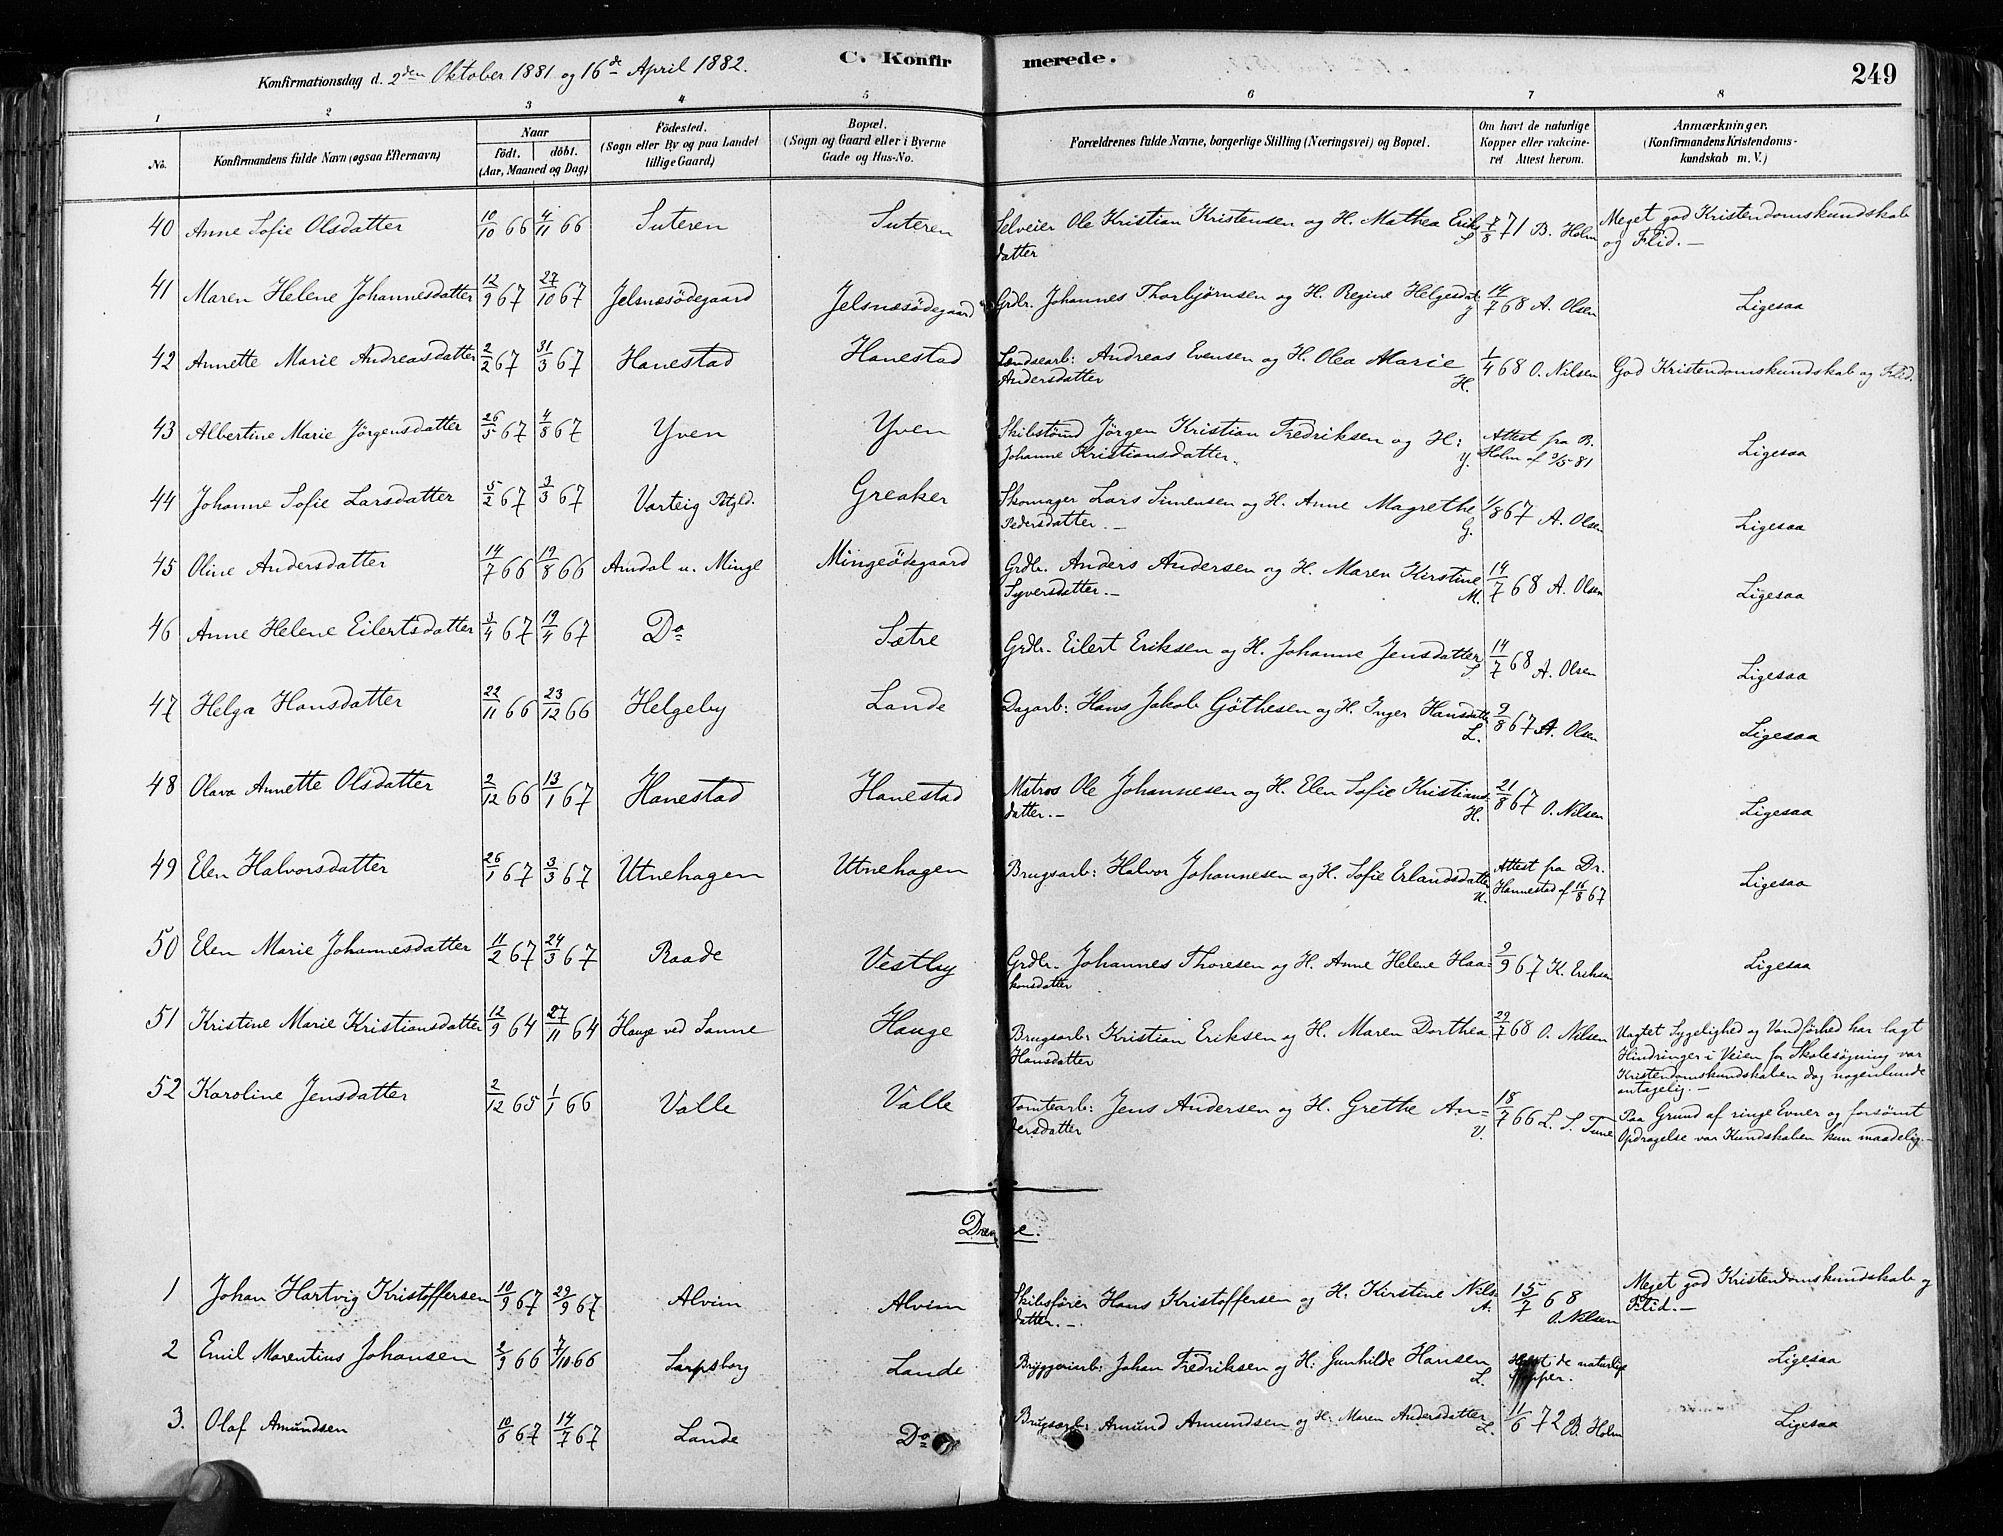 Konfirmationsdag d. 2den Oktober 1881 og 16de April 1882.
C. Konfirmerede.
249
1 2 3 4 5 6 7 8
No.
Konfirmandens fulde Navn (ogsaa Efternavn)
Naar
födt. döbt.
(Aar, Maaned og Dag)
Födested.
(Sogn eller By og paa Landet
tillige Gaard)
Bopæl.
(Sogn og Gaard eller i Byerne
Gade og Hus-No.
Forældrenes fulde Navne, borgerlige Stilling (Næringsvei) og Bopæl.
Om havt de naturlige
Kopper eller vakcine-
ret Attest herom.
Anmærkninger.
(Konfirmandens Kristendoms-
kundskab m. V.)
40 Anne Sofie Olsdatter 10/10 66 4/11 66 Suteren Suteren Selveier Ole Kristian Kristensen og H. Mathea Eriks- 7/8 71 B. Holm Meget god Kristendomskundskab
datter S. og Flid.—
41 Maren Helene Johannesdatter 12/9 67 27/10 67 Jelsnæsödegaard Jelsnæsödegaard Grdbr. Johannes Thorbjørnsen og H. Regine Helgesdat. 14/7 68 A. Olsen Ligesaa
42 Annette Marie Andreasdatter 2/2 67 31/3 67 Hanestad Hanestad Landsearb: Andreas Evensen og H. Olea Marie 1/4 68 O. Nilsen God Kristendomskundskab og Flid.
Andersdatter H.
43 Albertine Marie Jörgensdatter 26/5 67 4/8 67 Yven Yven Skibstømd Jörgen Kristian Fredriksen og H: Attest fra B. Ligesaa
Johanne Kristiansdatter. Y. Holm af 9/5 81
44 Johanne Sofie Larsdatter 5/2 67 3/3 67 Varteig Pstgld. Greaker Skomager Lars Simensen og H. Anne Magrethe 1/8 67 A. Olsen Ligesaa
Pedersdatter.— G.
45 Oline Andersdatter 14/7 66 19/8 66 Amdal u. Minge Mingeödegaard Grdbr. Anders Andersen og H. Maren Kirstine 14/7 68 A. Olsen Ligesaa
Syversdatter.— M.
46 Anne Helene Eilertsdatter 3/4 67 19/4 67 Do Sætre Grdbr. Eilert Eriksen og H. Johanne Jensdatter S. 14/7 68 A. Olsen Ligesaa
47 Helga Hansdatter 22/11 66 23/12 66 Helgeby Lande Dagarb: Hans Jakob Göthesen og H. Inger Hansdatter L. 9/8 67 A. Olsen Ligesaa
48 Olava Annette Olsdatter 2/12 66 13/1 67 Hanestad Hanestad Matros Ole Johannesen og H. Elen Sofie Kristians- 21/8 67 O. Nilsen Ligesaa
datter.— H.
49 Elen Halvorsdatter 26/1 67 3/3 67 Utnehagen Utnehagen Brugsarb: Halvor Johannesen og H. Sofie Erlandsdatter Attest fra Dr. Ligesaa
U. Hannestad af 16/8 67
50 Elen Marie Johannesdatter 11/2 67 24/3 67 Raade Vestby Grdbr. Johannes Thoresen og H. Anne Helene Haa- 9/9 67 K. Eriksen Ligesaa
konsdatter
51 Kristine Marie Kristiansdatter 12/9 64 27/11 64 Hauge ved Sanne Hauge Brugsarb: Kristian Eriksen og H. Maren Dorthea 29/7 68 O. Nilsen Uagtet Sygelighed og Vanförhed har lagt
Hansdatter Hindringer i Veien for Skolesøgning var
Kristendomskundskaben dog nogenlunde
antagelig.—
52 Karoline Jensdatter 2/12 65 1/1 66 Valle Valle Tomtearb: Jens Andersen og H. Grethe An- 18/7 66 L. S. Tune Paa Grund af ringe Evner og forsömt
dersdatter V. Opdragelse var Kundskaben kun maadelig.—
Drenge.
1 Johan Hartvig Kristoffersen 10/9 67 29/9 67 Alvim Alvim Skibsfører Hans Kristoffersen og H. Kirstine Nils- 15/7 68 Meget god Kristendomskundskab og
datter.— A. O. Nilsen Flid.—
2 Emil Marentius Johansen 2/9 66 7/10 66 Sarpsborg Lande Bryggeriarb: Johan Fredriksen og H: Gunhilde Hansen L. Havt de naturlige Ligesaa
Kopper.
3. Olaf Amundsen 10/6 67 14/7 67 Lande Do Brugsarb: Amund Amundsen og H. Maren Andersdatter L. 11/6 72 B. Holm Ligesaa